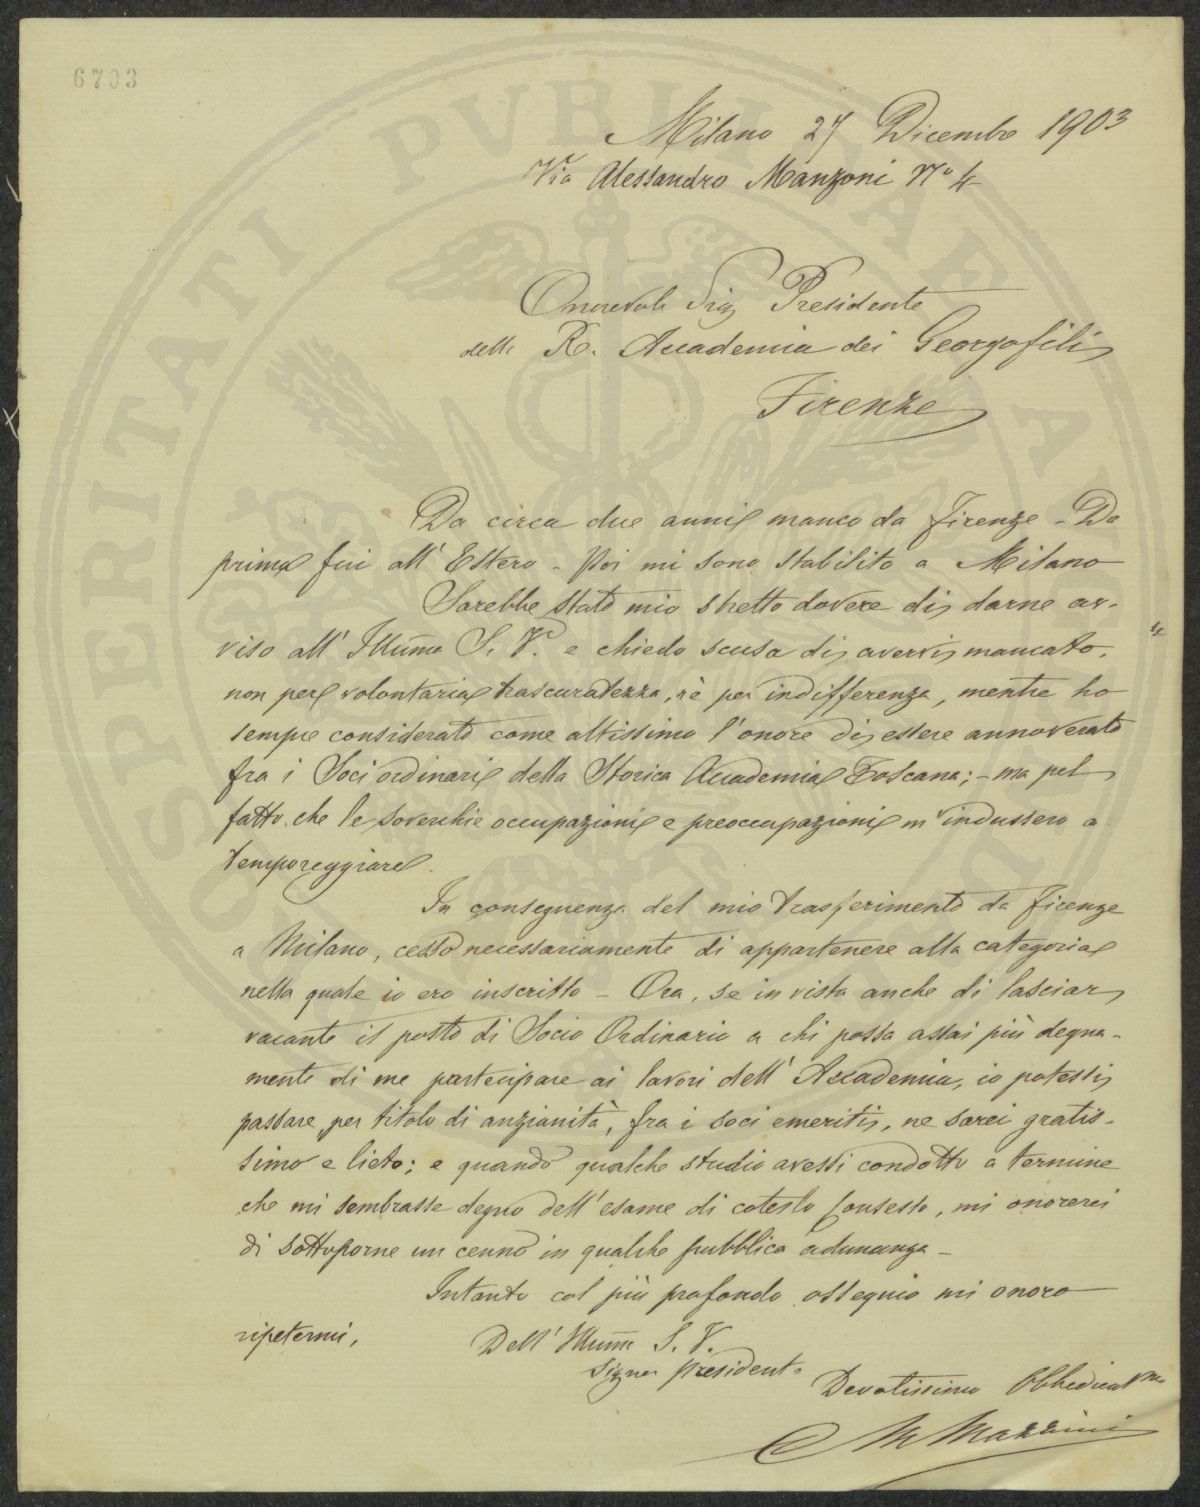 6703
Milano 27 Dicembre 1903
Via Alessandro Manzoni No 4
Onorevole Sig Presidente
della R. Accademia dei Georgofili
Firenze
Da circa due anni manco da Firenze - Da
prima fui all' Estero - Poi mi sono stabilito a Milano
Sarebbe stato mio stretto dovere di darne av-
viso all' Illuma S. V. e chiedo scusa di avervi mancato,
non per volontaria trascuratezza, nè per indifferenza, mentre ho
sempre considerato come altissimo l'onore di essere annoverato
fra i Soci ordinari della Storica Accademia Toscana; - ma pel
fatto che le soverchie occupazioni e preoccupazioni m'indussero a
temporeggiare.
In conseguenza del mio trasferimento da Firenze
a Milano, cesso necessariamente di appartenere alla categoria
nella quale io ero inscritto - Ora, se in vista anche di lasciar
vacante il posto di Socio Ordinario a chi possa assai più degna-
mente di me partecipare ai lavori dell' Accademia, io potessi
passare, per titolo di anzianità, fra i soci emeriti, ne sarei gratis-
simo e lieto; e quando qualche studio avessi condotto a termine
che mi sembrasse degno dell' esame di cotesto Consesso, mi onorerei
di sottoporne un cenno in qualche pubblica adunanza -
Intanto col più profondo ossequio mi onoro
ripetermi,
Dell' Illuma S. V.
Signor Presidente
Devotissimo Obbedientmo
C M Mazzini
SPERITATI PVBLICAE